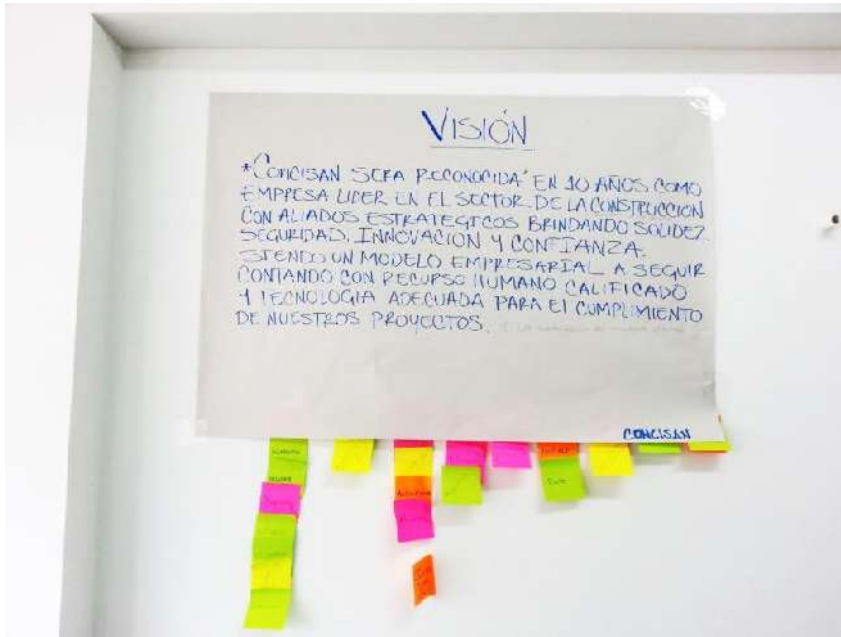 VISIÓN
*CONCISAN SERA RECONOCIDA EN 10 AÑOS COMO
EMPRESA LIDER EN EL SECTOR DE LA CONSTRUCCION
CON ALIADOS ESTRATEGICOS BRINDANDO SOLIDEZ
SEGURIDAD, INNOVACION Y CONFIANZA.
SIENDO UN MODELO EMPRESARIAL A SEGUIR
CONTANDO CON RECURSO HUMANO CALIFICADO
Y TECNOLOGIA ADECUADA PARA El CUMPLIMIENTO
DE NUESTROS PROYECTOS.
CONCISAN